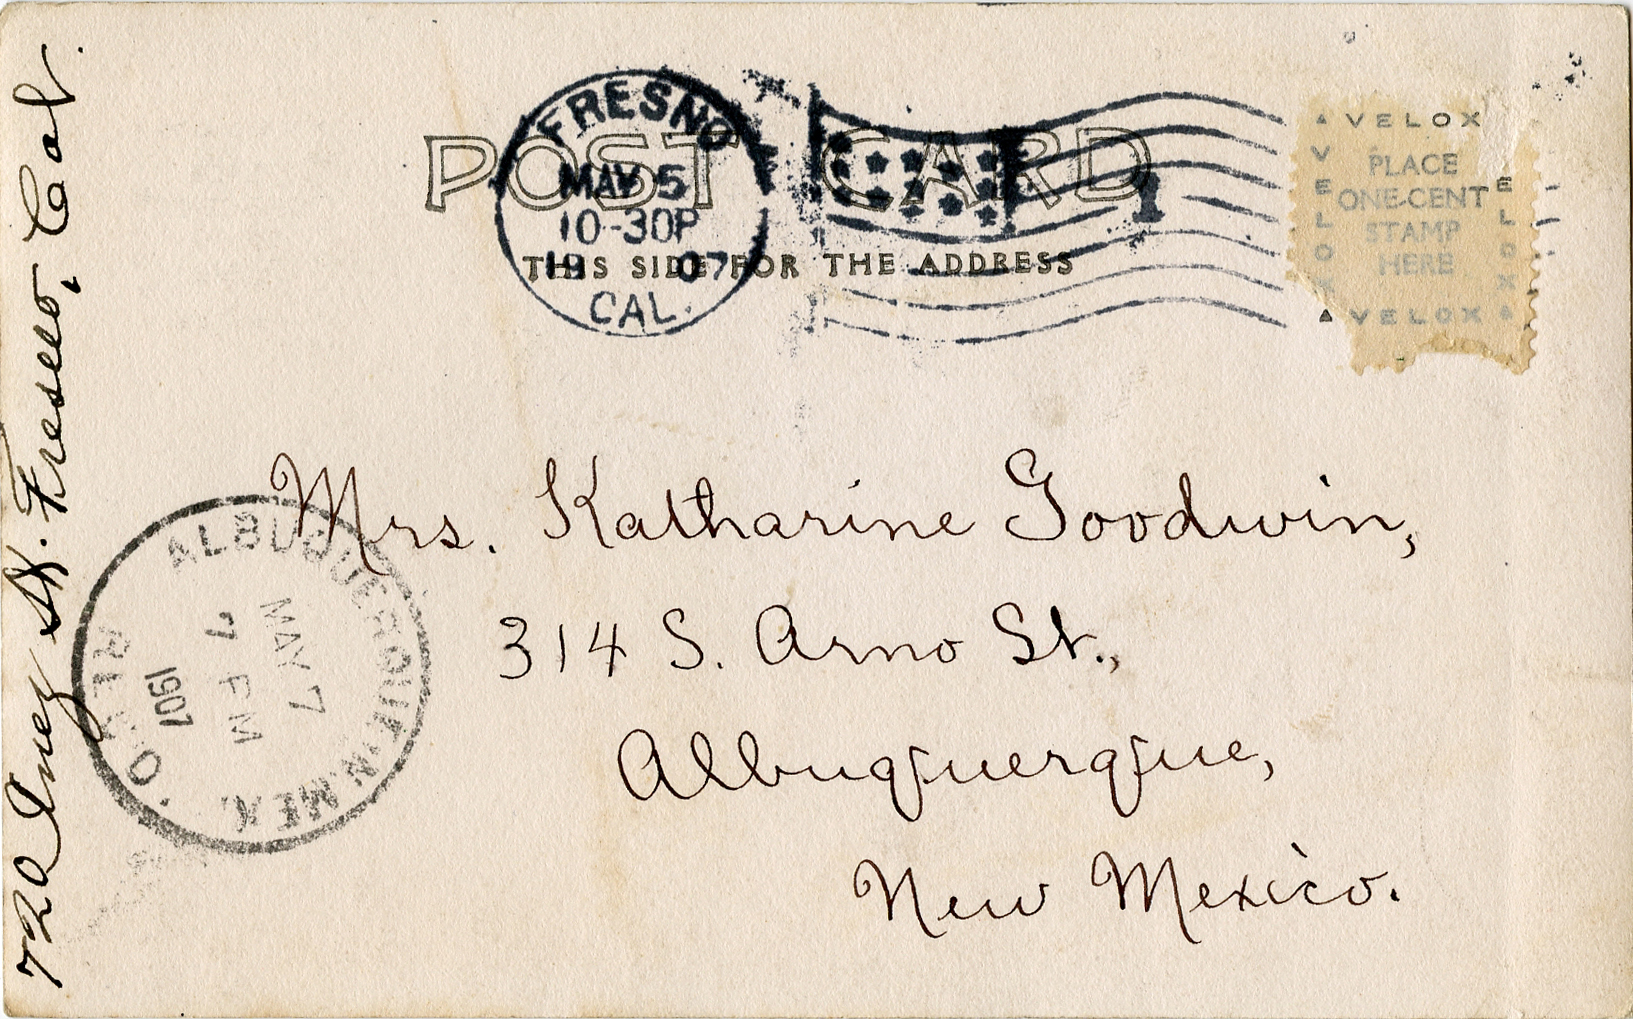 POST CARD
THIS SIDE FOR THE ADDRESS
FRESNO
MAY 5
10-30P
19 07
CAL.
1
VELOX
VELOX
VELOX
PLACE
ONE-CENT
STAMP
HERE
VELOX
Mrs. Katharine Goodwin,
314 S. Arno St.,
Albuquerque,
New Mexico.
720 Inez St. Fresno, Cal.
ALBUQUERQUE N. MEX.
MAY 7
7 PM
1907
REC'D.